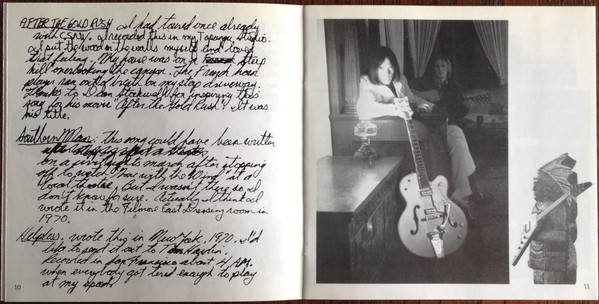 AFTER THE GOLD RUSH I had toured once already
with CSNY. I recorded this in my Topanga Studio.
I put the wood on the walls myself and loved
that feeling. My house was on a steep
hill overlooking the canyon. The French horn
player ran out of breath on my steep driveway.
Thanks to Dean Stockwell for inspiring this
song for his movie "After the Gold Rush". It was
his title.
Southern Man: This song could have been written
on a civil rights march after stopping
off to watch "Gone with the Wind" at a
local theatre, But I wasn't there so I
don't know for sure. Actually I think I
wrote it in the Fillmore East Dressing room in
1970.
Helpless, wrote this in New York, 1970. I'd
Recorded in San Francisco about 4 AM.
when everybody got tired enough to play
at my speed.
10
11